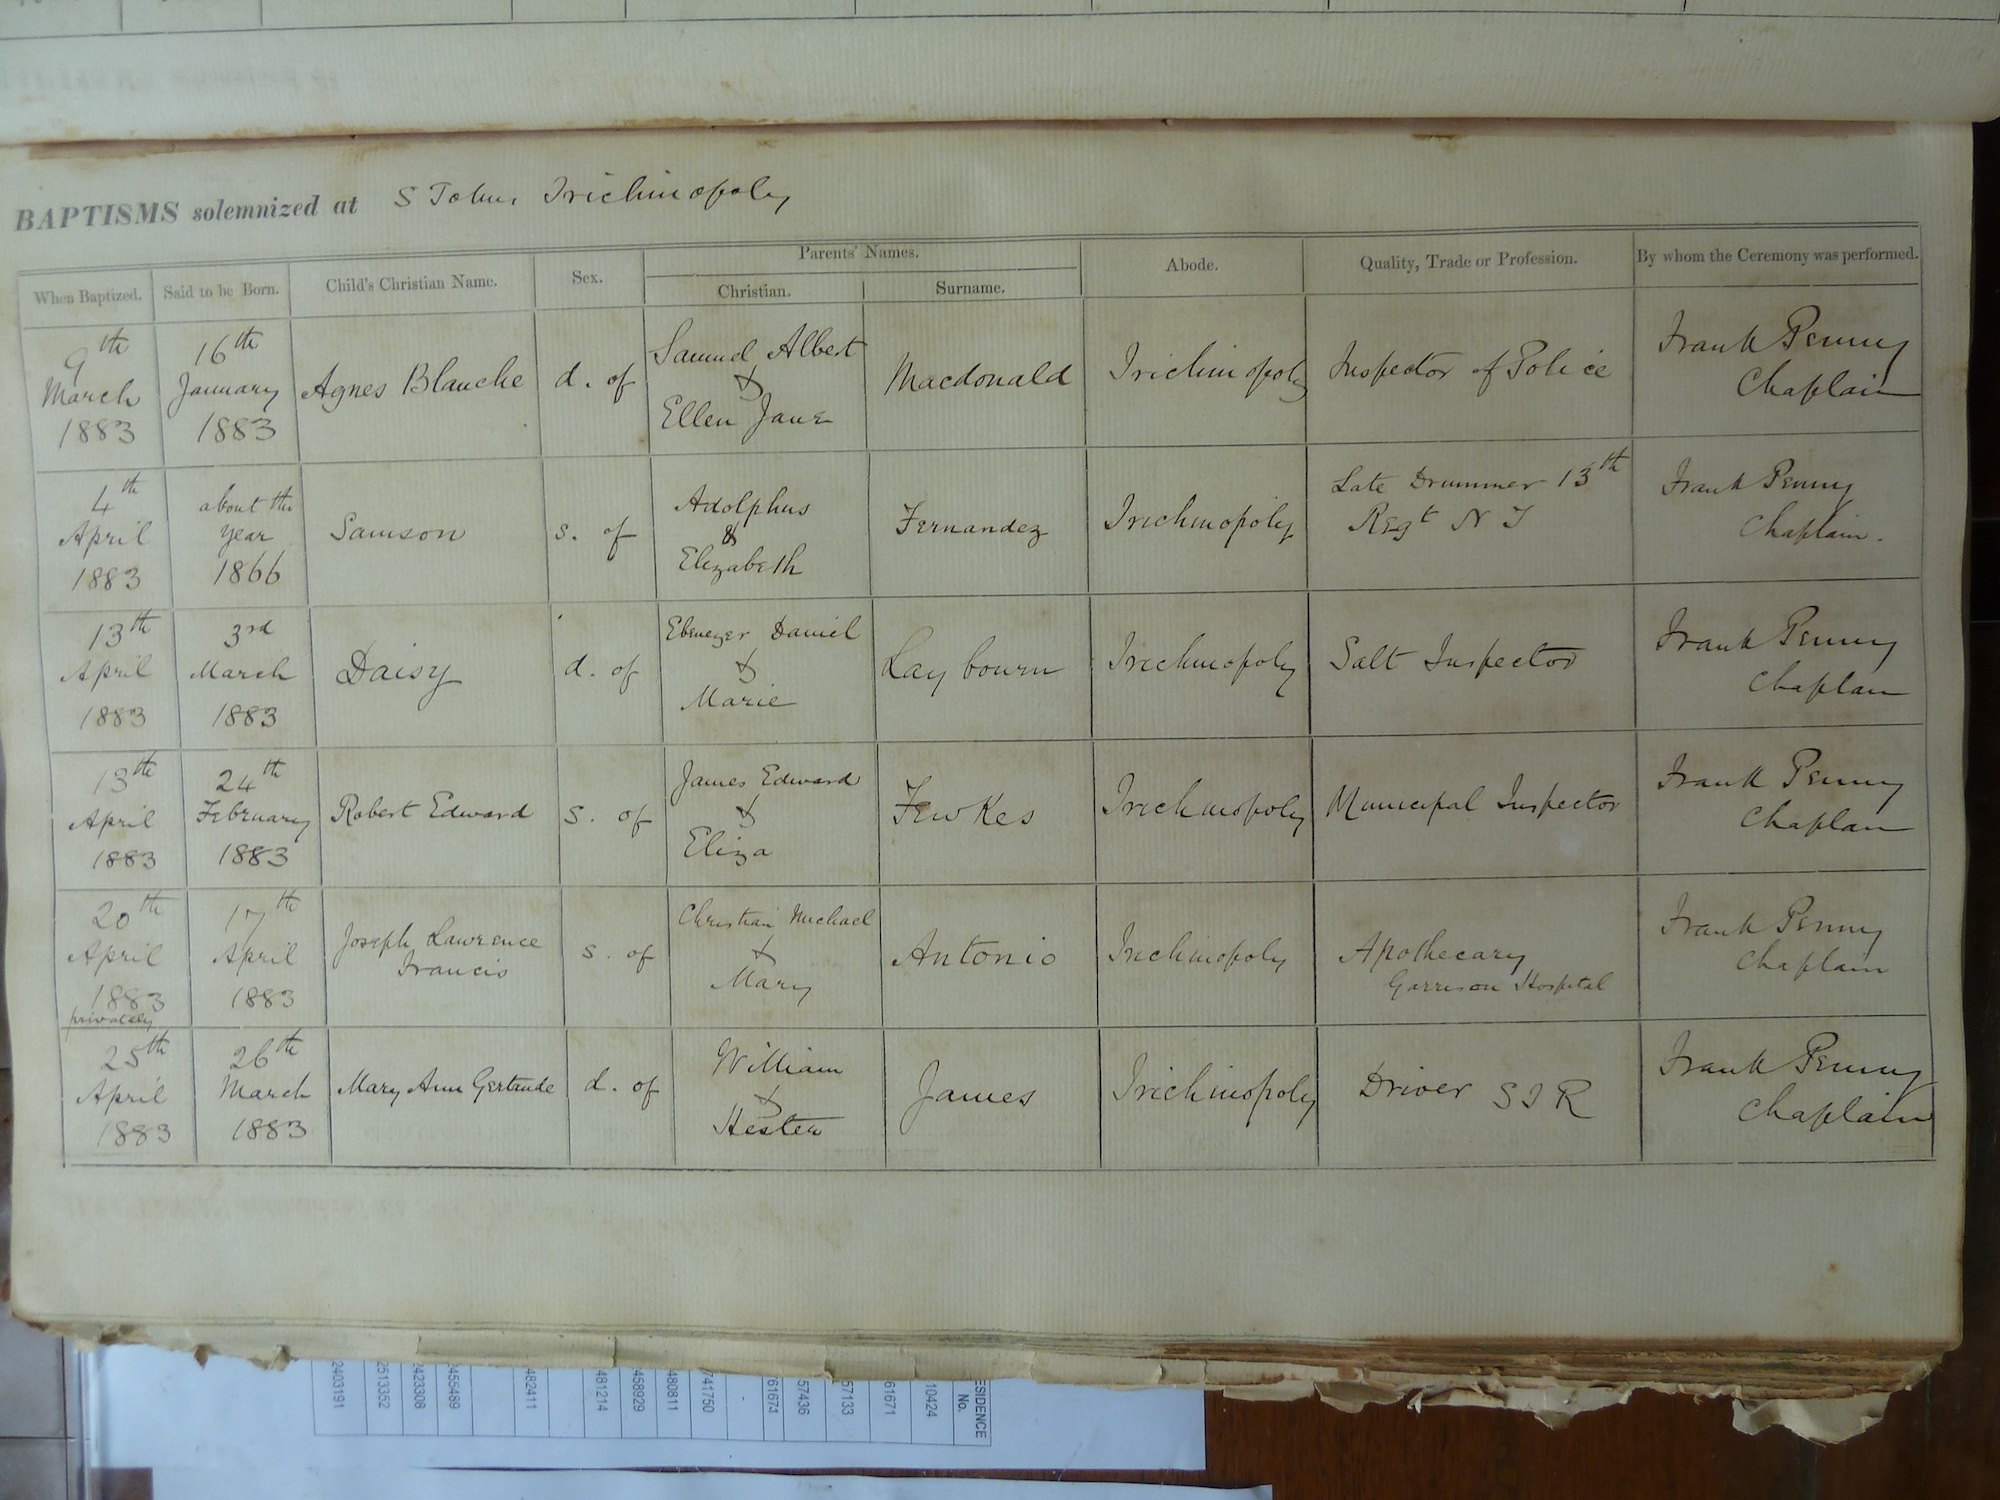 BAPTISMS solemnized at S Johns Trichinopoly
When Baptized. Said to be Born. Child's Christian Name. Sex. Parents' Names. Abode. Quality, Trade or Profession. By whom the Ceremony was performed.
Christian. Surname.
9th March 1883 16th January 1883 Agnes Blanche d. of Samuel Albert & Ellen Jane Macdonald Trichinopoly Inspector of Police Frank Penny Chaplain
4th April 1883 about the year 1866 Samson s. of Adolphus & Elizabeth Fernandez Trichinopoly Late Drummer 13th Regt N I Frank Penny Chaplain.
13th April 1883 3rd March 1883 Daisy d. of Ebenezer Daniel & Marie Laybourn Trichinopoly Salt Inspector Frank Penny Chaplain
13th April 1883 24th February 1883 Robert Edward s. of James Edward & Eliza Fewkes Trichinopoly Municipal Inspector Frank Penny Chaplain
20th April 1883 privately 17th April 1883 Joseph Lawrence Francis s. of Christian Michael & Mary Antonio Trichinopoly Apothecary Garrison Hospital Frank Penny Chaplain
25th April 1883 26th March 1883 Mary Ann Gertrude d. of William & Hester James Trichinopoly Driver S I R Frank Penny Chaplain
ESIDENCE No.
10424
61671
57133
57436
61673
-
741750
480811
458929
481214
482411
2455489
2423308
2513352
2403191